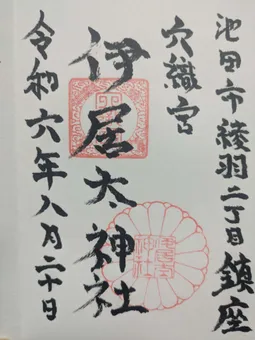 池田市綾羽二丁目鎮座
穴織宮
伊居太神社
令和六年八月二十日